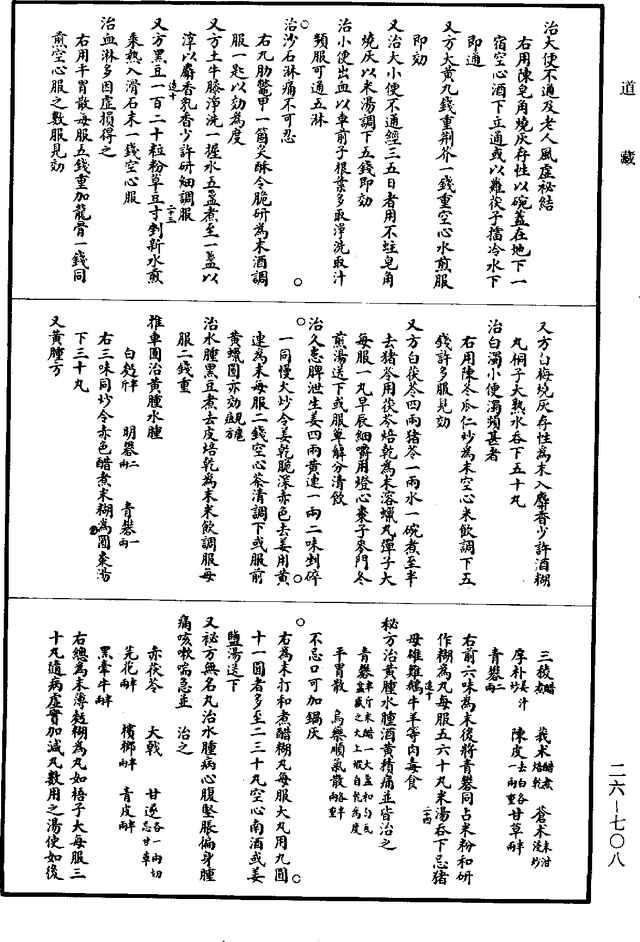 道藏
治大便不通及老人風虛祕結
右用陳皂角燒灰存性以碗蓋在地下一
宿空心酒下立通或以雞筏子擂冷水下
即通
又方大黃九錢重荆芥一錢重空心水煎服
即効
又治大小便不通經三五日者用不蛀皂角
燒灰以米湯調下五錢即効
治小便出血以車前子根葉多取淨洗取汁
頻服可通五淋
治沙石淋痛不可忍
右九肋鱉甲一箇炙酥令脆研為末酒調
服一匙以効為度
又方土牛膝淨洗一握水五盞煮至一盞以
淳以麝香乳香少許研細調服
遠十 二十三
又方黑豆一百二十粒粉草豆寸剉新水煎
乘熱入滑石末一錢空心服
治血淋多因虛損得之
右用平胃散每服五錢重加龍骨一錢同
煎空心服之數服見効
又方白梅燒灰存性為末入麝香少許酒糊
丸桐子大熟水吞下五十丸
治白濁小便濁頻甚者
右用陳冬瓜仁炒為末空心米飲調下五
錢許多服見効
又方白茯苓四兩猪苓一兩水一碗煮至半
去猪苓用茯苓焙乾為末溶蠟丸彈子大
每服一丸早辰細嚼用燈心棗子麥門冬
煎湯送下或服萆解分清飲
治久患脾泄生姜四兩黃連一兩二味剉碎
一同慢火炒令姜乾脆深赤色去姜用黃
連為末每服二錢空心茶清調下或服前
黃蠟圓亦効
治水腫黑豆煮去皮焙乾為末米飲調服每
服二錢重
推車圓治黃腫水腫
白麪半斤 明礬二兩 青礬一兩
右三味同炒令赤色醋煮米糊為圓棗湯
下三十丸
又黃腫方
三稜醋煮 莪朮醋煮焙乾 蒼朮米泔浸炒
厚朴姜汁炒 陳皮去白各一兩重 甘草半兩
青礬二兩
右前六味為末後將青礬同占米粉和研
作糊為丸每服五六十丸米湯吞下忌猪
母雄雞鵝牛羊等肉毒食
遠十 二十四
秘方治黃腫水腫酒黃積痛並皆治之
平胃散 烏藥順氣散各半兩重
不忌口可加鍋灰
右為末打和煮醋糊丸每服大丸用九圓
十一圓者多至二三十丸空心南酒或姜
鹽湯送下
又祕方無名丸治水腫病心腹堅脹偏身腫
痛咳嗽喘急並治之
赤茯苓 大戟 甘遂各一兩切忌甘草
芫花半兩 檳榔半兩 青皮半兩
黑牽牛半兩
右總為末薄麪糊為丸如梧子大每服三
十丸隨病虛實加減丸數用之湯使如後
二六—七〇八